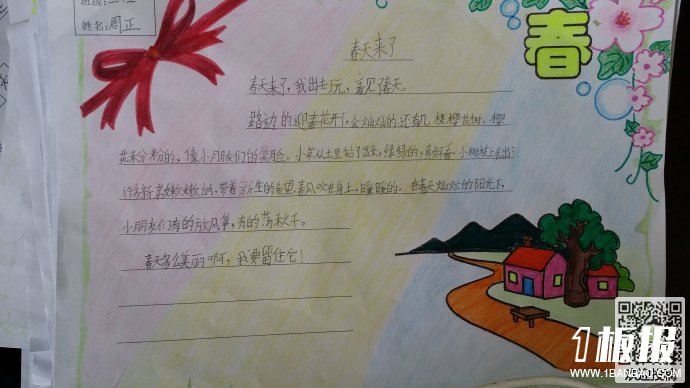 姓名:周正
春
春天来了
春天来了,我出去玩,看见春天。
路边的迎春花开了,金灿灿的还有几棵樱花树、樱
花米分粉的,像小月朋友们的笑脸。小草从土里钻了出来,绿绿的,真好看。小树枝上长出
许多新嫩嫩的,带着新生的希望,春风吹在身上,暖暖的。在春天灿烂的阳光下,
小朋友们有的放风筝,有的荡秋千。
春天多么美丽啊,我要留住它!
1板报
WWW.1BANBAO.COM
欢迎投稿